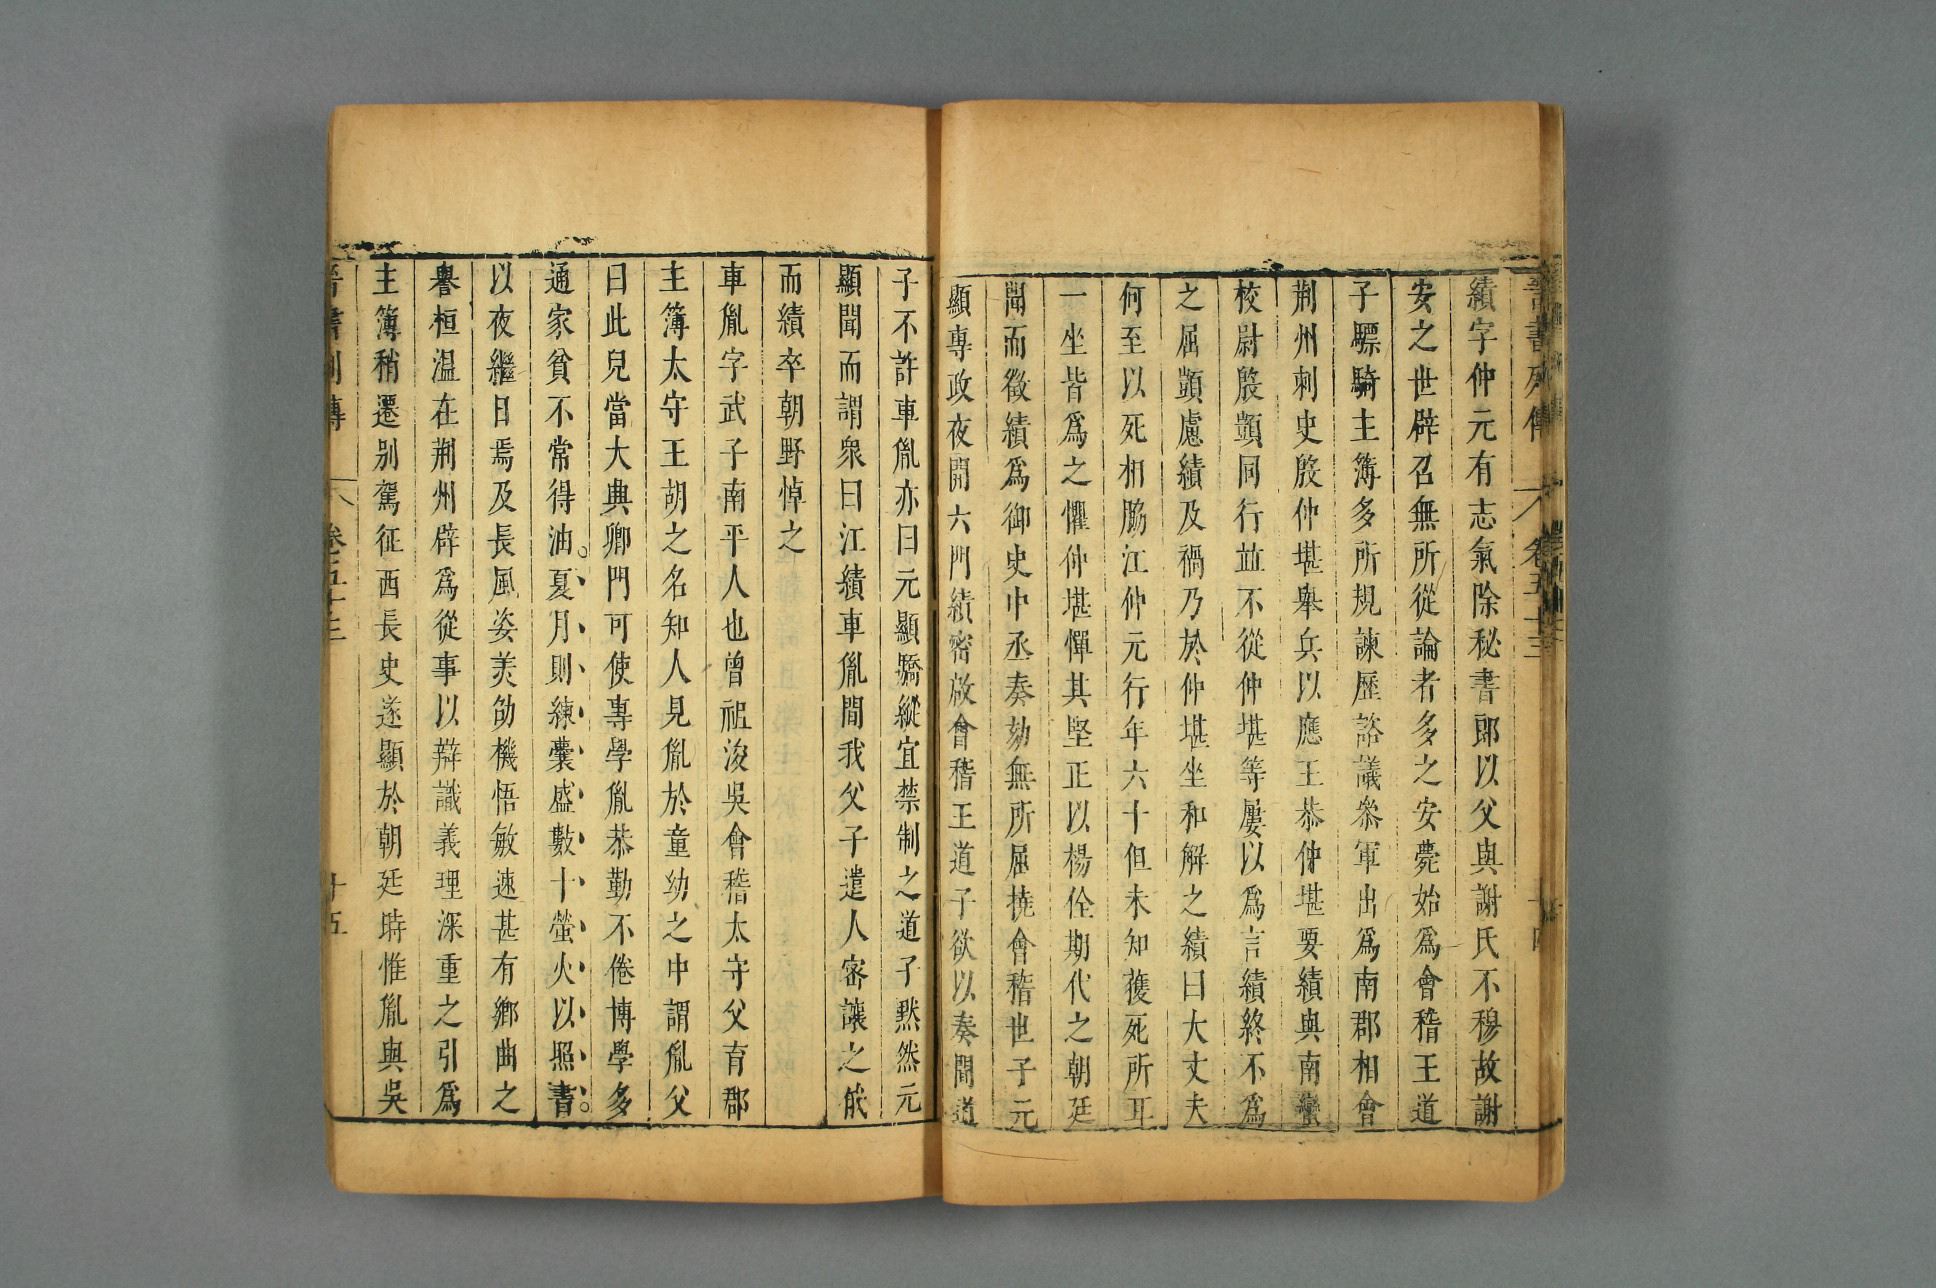 晉書列傳 卷五十三 十四
績字仲元有志氣除秘書郎以父與謝氏不穆故謝
安之世辟召無所從論者多之安薨始爲會稽王道
子驃騎主簿多所規諫歷諮議參軍出爲南郡相會
荆州刺史殷仲堪舉兵以應王恭仲堪要績與南蠻
校尉殷顗同行並不從仲堪等屢以爲言績終不爲
之屈顗慮績及禍乃於仲堪坐和解之績曰大丈夫
何至以死相脇江仲元行年六十但未知獲死所耳
一坐皆爲之懼仲堪憚其堅正以楊佺期代之朝廷
聞而徵績爲御史中丞奏劾無所屈撓會稽世子元
顯專政夜開六門績密啟會稽王道子欲以奏聞道
子不許車胤亦曰元顯驕縱宜禁制之道子黙然元
顯聞而謂衆曰江績車胤間我父子遣人密讓之俄
而績卒朝野悼之
車胤字武子南平人也曾祖浚吳會稽太守父育郡
主簿太守王胡之名知人見胤於童幼之中謂胤父
曰此兒當大興卿門可使專學胤恭勤不倦博學多
通家貧不常得油夏月則練囊盛數十螢火以照書
以夜繼日焉及長風姿美劭機悟敏速甚有鄉曲之
譽桓温在荆州辟爲從事以辯識義理深重之引爲
主簿稍遷别駕征西長史遂顯於朝廷時惟胤與吳
晉書列傳 卷五十三 十五